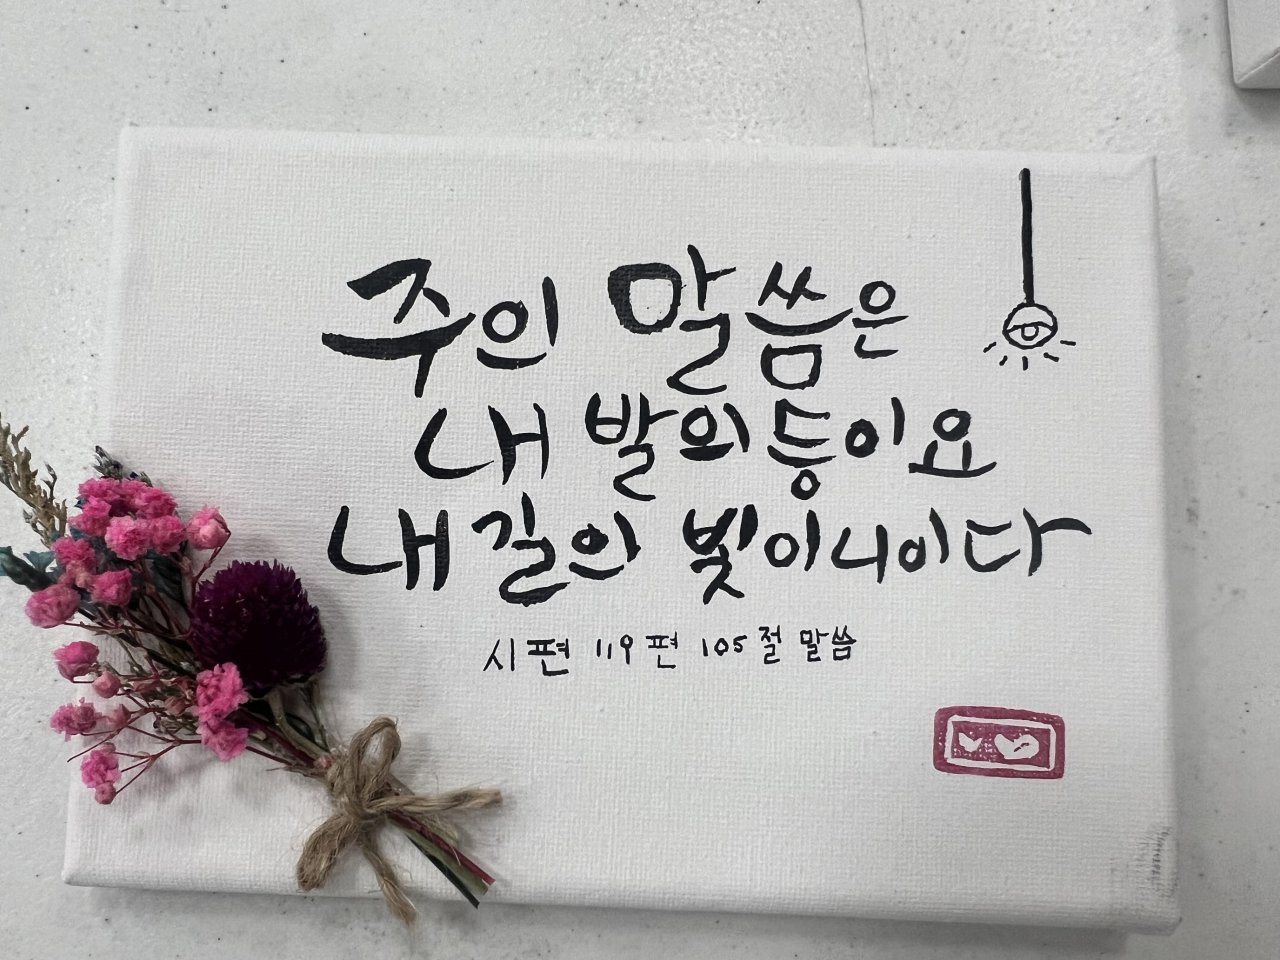 주의 말씀은
내 발의 등이요
내 길의 빛이니이다
시편 119편 105절 말씀